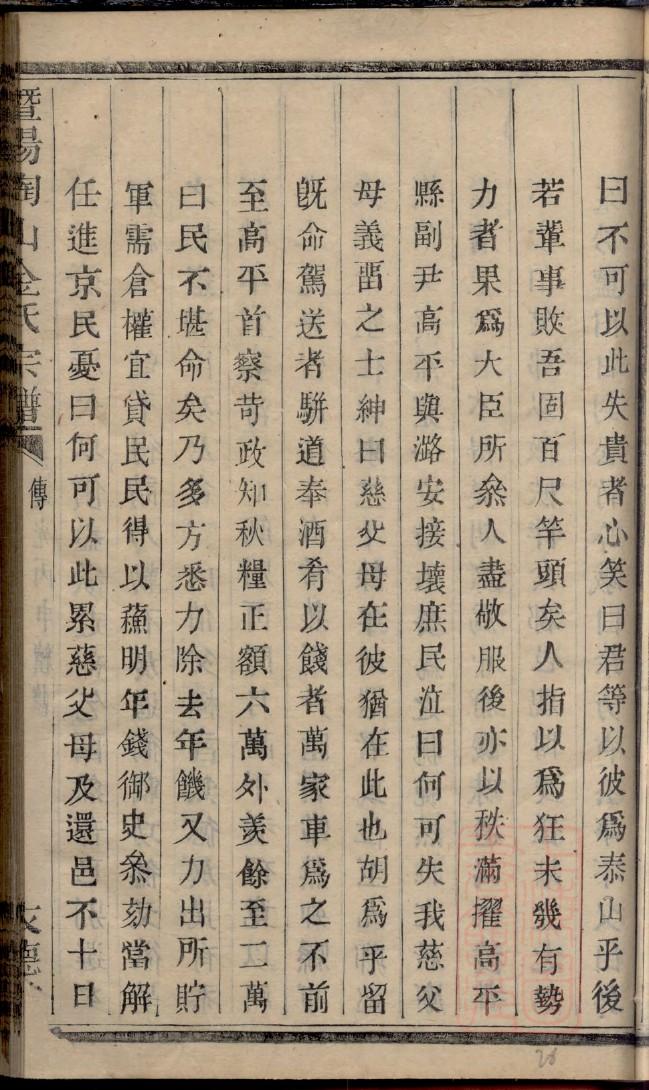 曰不可以此失貴者心笑曰君等以彼爲泰山乎後
若輩事敗吾固百尺竿頭矣人指以爲狂未幾有勢
力者果爲大臣所叅人盡敬服後亦以秩滿擢高平
縣副尹高平與潞安接壤庶民泣曰何可失我慈父
母義畱之士紳曰慈父母在彼猶在此也胡爲乎留
旣命駕送者駢道奉酒肴以餞者萬家車爲之不前
至高平首察苛政知秋糧正額六萬外羨餘至二萬
曰民不堪命矣乃多方悉力除去年饑又力出所貯
軍需倉權宜貸民民得以蘓明年錢御史叅劾當解
任進京民憂曰何可以此累慈父母及還邑不十日
暨陽陶山金氏宗譜
傳